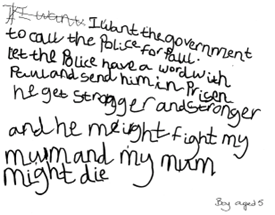 I want I want the government
to call the Police for Paul.
let the Police have a word with
Paul and send him in Prison
he get strongger and stronger
and he meight fight my
mum and my mum
might die
Boy aged 5